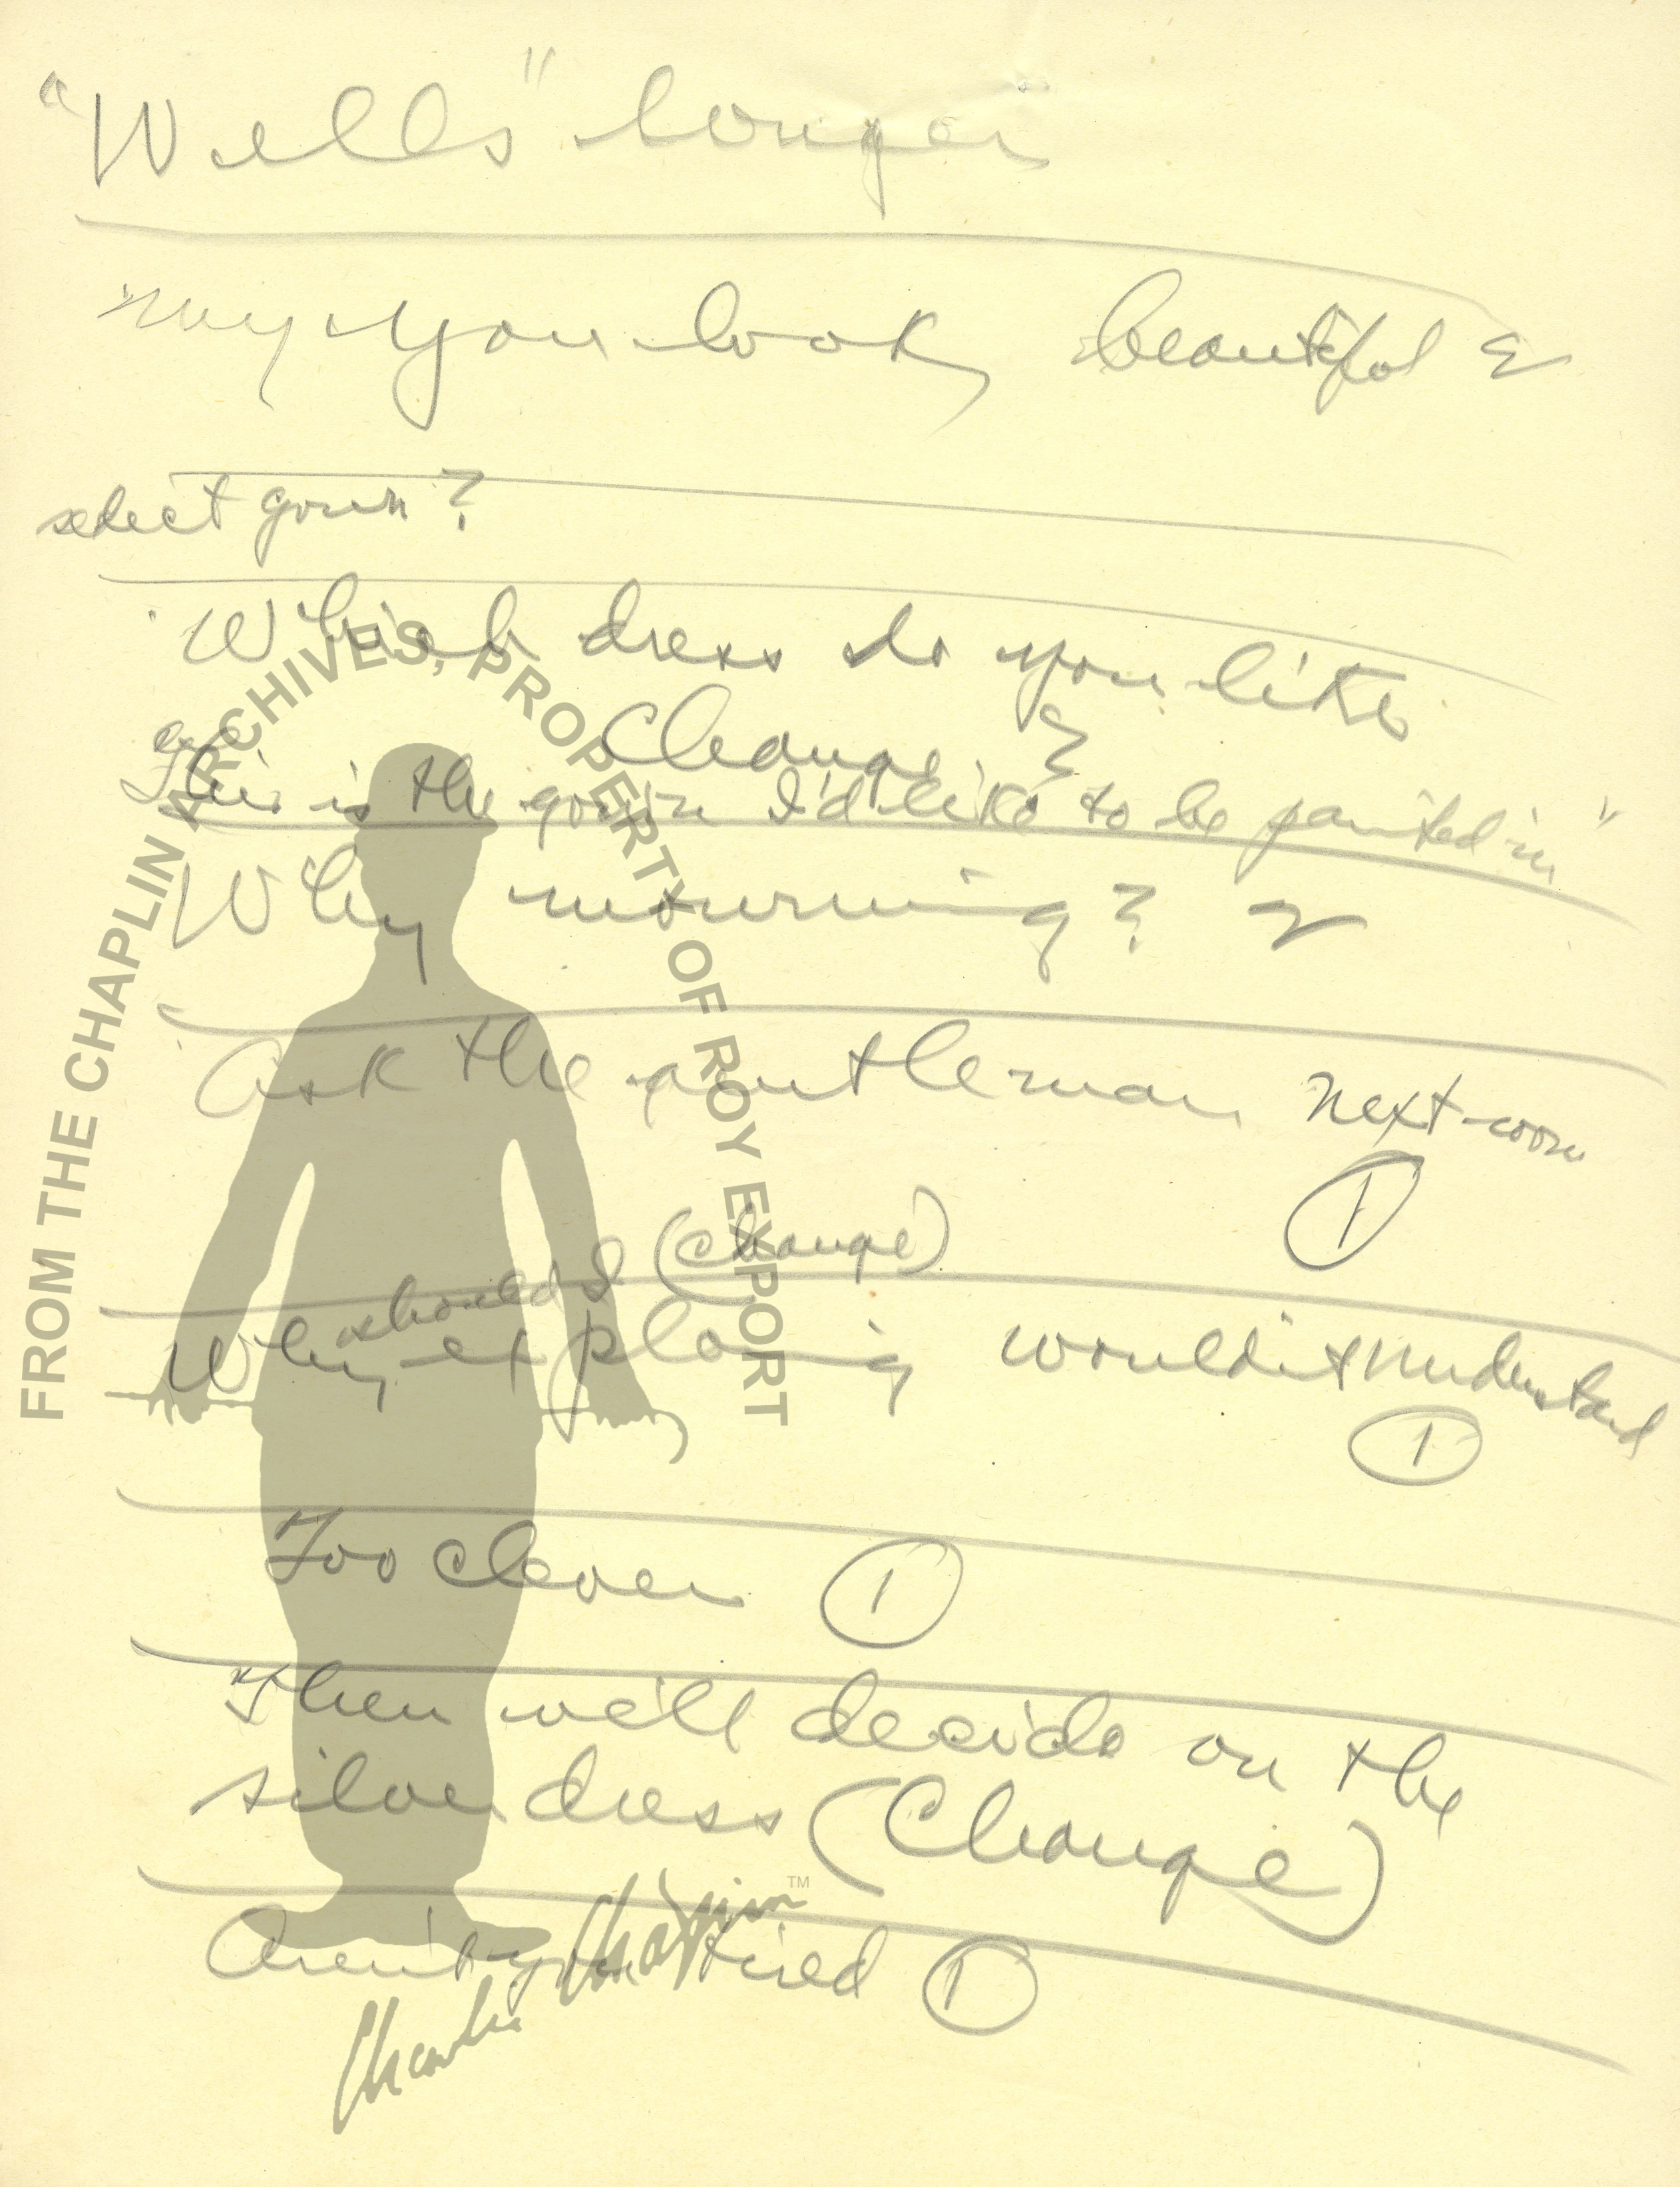 "Wells" longer
my you look beautiful &
select gown?
Which dress do you like
Change.
This is the gown I'd like to be painted in"
Why mourning?
Ask the gentleman next room
1
should I (Change)
Why explaing wouldn't understand
1
Too clever 1
Then we'll decide on the
silver dress (Change)
Aren't you tired 1
FROM THE CHAPLIN ARCHIVES, PROPERTY OF ROY EXPORT
Charlie Chaplin TM